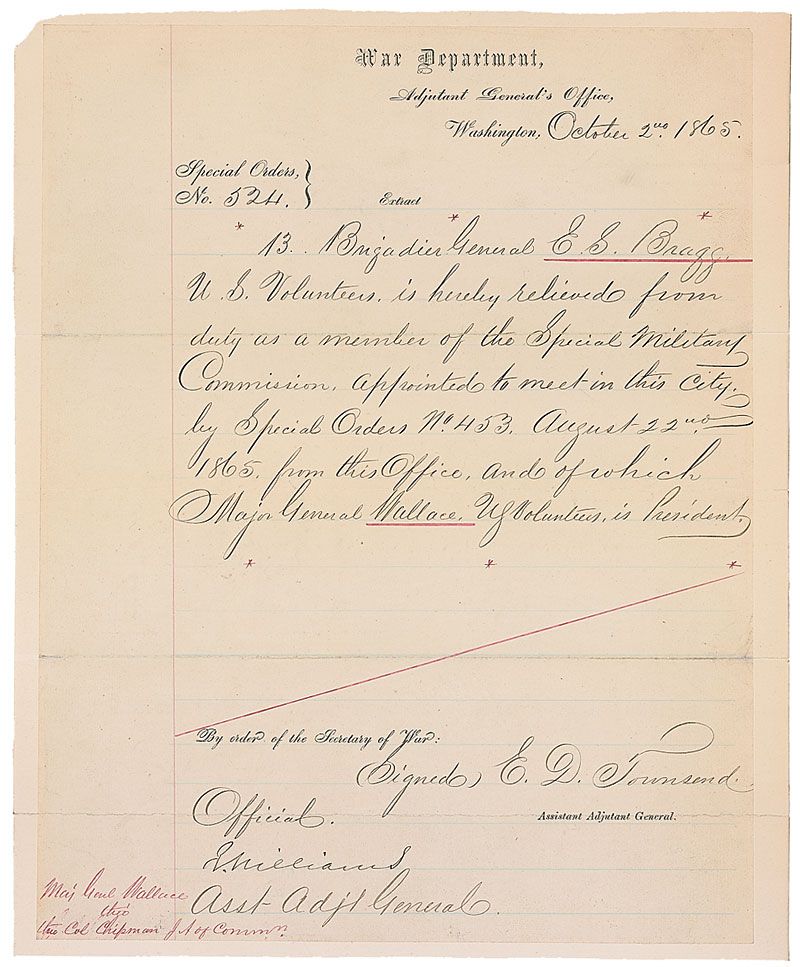 War Department,
Adjutant General's Office,
Washington, October 2nd. 1865.
Special Orders,
No. 524.
Extract
* * *
13. Brigadier General E. S. Bragg,
U. S. Volunteers, is hereby relieved from
duty as a member of the Special Military
Commission, appointed to meet in this city,
by Special Orders No. 453, August 22nd
1865, from this Office, and of which
Major General Wallace, US Volunteers, is President.
* * *
By order of the Secretary of War:
(Signed) E. D. Townsend.
Assistant Adjutant General.
Official.
Williams
Asst Adjt General.
Maj Genl Wallace
thro
thro Col Chipman J A of Commn.